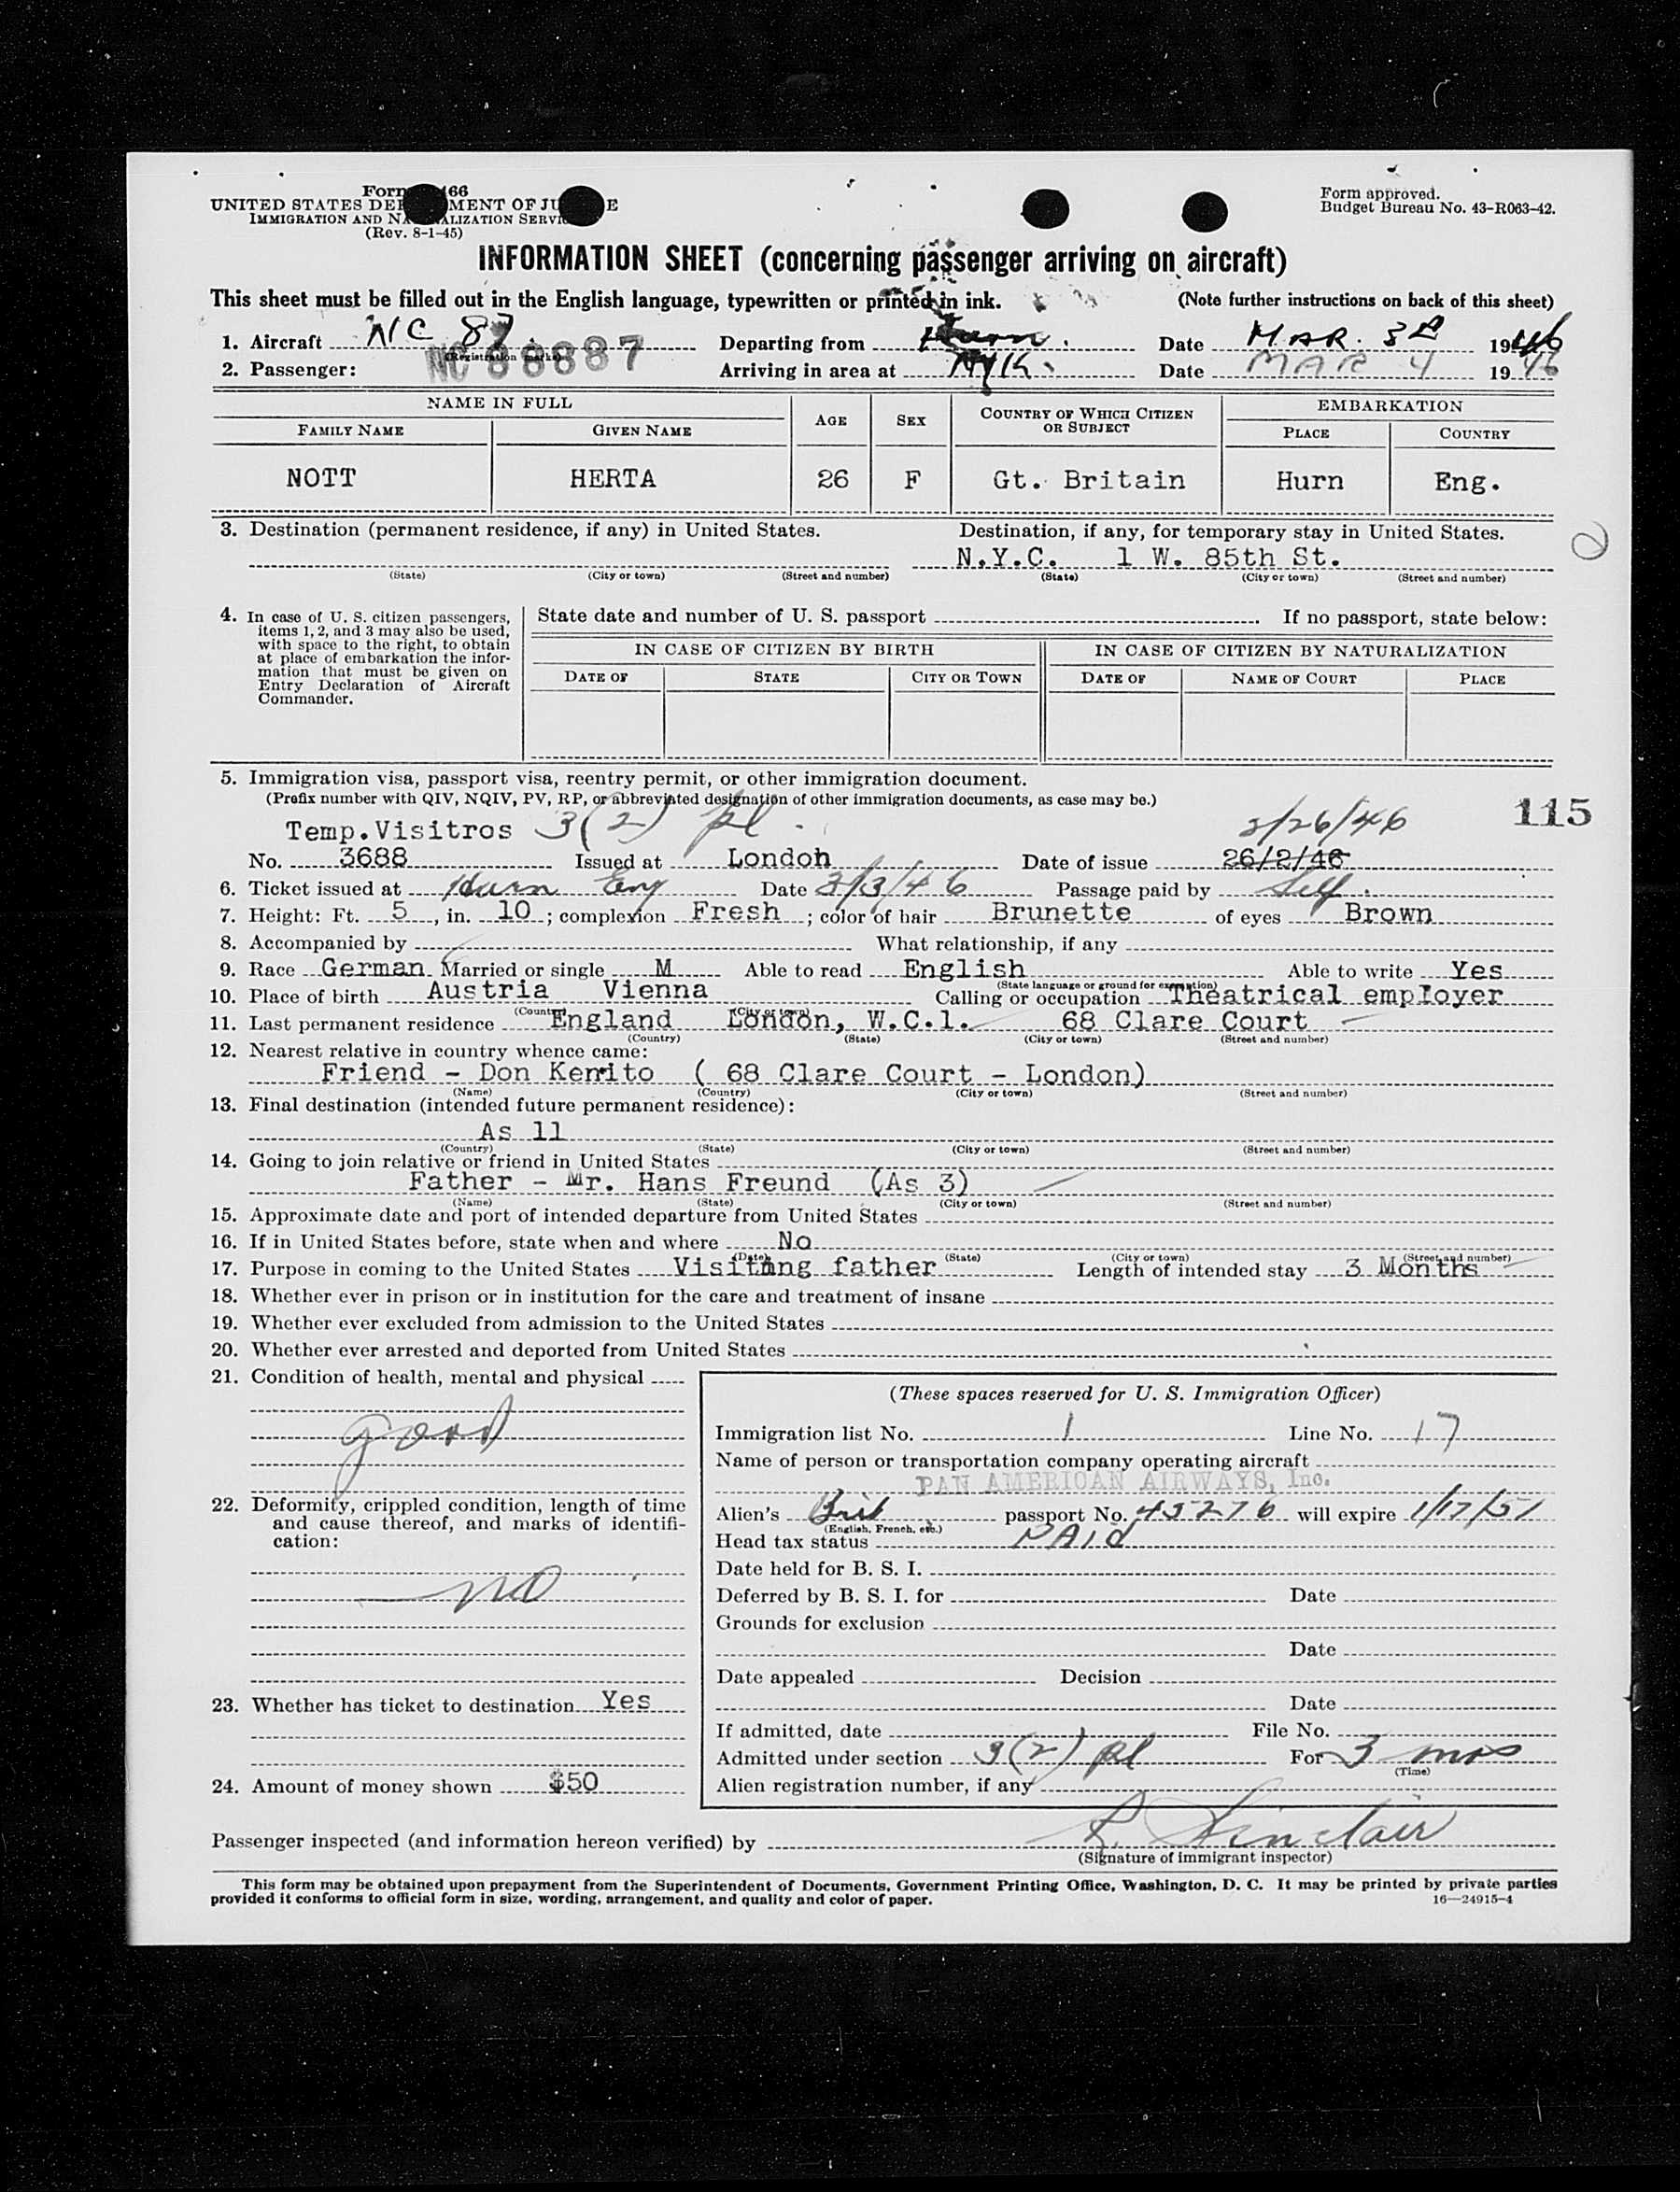 Form 66
UNITED STATES DEP MENT OF JU E
IMMIGRATION AND NA ALIZATION SERVI
(Rev. 8-1-45)
Form approved.
Budget Bureau No. 43-R063-42.
INFORMATION SHEET (concerning passenger arriving on aircraft)
This sheet must be filled out in the English language, typewritten or printed in ink. (Note further instructions on back of this sheet)
1. Aircraft NC 87 Departing from Hurn. Date MAR. 3rd 1946
(Registration marks) NC 88887
2. Passenger: Arriving in area at NYK. Date MAR 4 1946
NAME IN FULL AGE SEX COUNTRY OF WHICH CITIZEN OR SUBJECT EMBARKATION
FAMILY NAME GIVEN NAME PLACE COUNTRY
NOTT HERTA 26 F Gt. Britain Hurn Eng.
3. Destination (permanent residence, if any) in United States. Destination, if any, for temporary stay in United States.
N.Y.C. 1 W. 85th St.
(State) (City or town) (Street and number) (State) (City or town) (Street and number)
2
4. In case of U. S. citizen passengers,
items 1, 2, and 3 may also be used,
with space to the right, to obtain
at place of embarkation the infor-
mation that must be given on
Entry Declaration of Aircraft
Commander.
State date and number of U. S. passport If no passport, state below:
IN CASE OF CITIZEN BY BIRTH IN CASE OF CITIZEN BY NATURALIZATION
DATE OF STATE CITY OR TOWN DATE OF NAME OF COURT PLACE
5. Immigration visa, passport visa, reentry permit, or other immigration document.
(Prefix number with QIV, NQIV, PV, RP, or abbreviated designation of other immigration documents, as case may be.)
115
Temp.Visitros 3(2) pl. 2/26/46
No. 3688 Issued at London Date of issue 26/2/46
6. Ticket issued at Hurn Eng Date 3/3/46 Passage paid by Self.
7. Height: Ft. 5, in. 10; complexion Fresh; color of hair Brunette of eyes Brown
8. Accompanied by What relationship, if any
9. Race German Married or single M Able to read English Able to write Yes
(State language or ground for exemption)
10. Place of birth Austria Vienna Calling or occupation Theatrical employer
(Country) (City or town)
11. Last permanent residence England London, W.C.1. 68 Clare Court
(Country) (State) (City or town) (Street and number)
12. Nearest relative in country whence came:
Friend - Don Kemito ( 68 Clare Court - London)
(Name) (Country) (City or town) (Street and number)
13. Final destination (intended future permanent residence):
As 11
(Country) (State) (City or town) (Street and number)
14. Going to join relative or friend in United States
Father - Mr. Hans Freund (As 3)
(Name) (State) (City or town) (Street and number)
15. Approximate date and port of intended departure from United States
16. If in United States before, state when and where No
(Date) (State) (City or town) (Street and number)
17. Purpose in coming to the United States Visiting father Length of intended stay 3 Months
18. Whether ever in prison or in institution for the care and treatment of insane
19. Whether ever excluded from admission to the United States
20. Whether ever arrested and deported from United States
21. Condition of health, mental and physical
good
22. Deformity, crippled condition, length of time
and cause thereof, and marks of identifi-
cation:
no
23. Whether has ticket to destination Yes
24. Amount of money shown $50
(These spaces reserved for U. S. Immigration Officer)
Immigration list No. 1 Line No. 17
Name of person or transportation company operating aircraft
PAN AMERICAN AIRWAYS, Inc.
Alien's Brit passport No. 45276 will expire 1/17/51
(English, French, etc.)
Head tax status PAID
Date held for B. S. I.
Deferred by B. S. I. for Date
Grounds for exclusion
Date
Date appealed Decision
Date
If admitted, date File No.
Admitted under section 3(2) pl For 3 mos
(Time)
Alien registration number, if any
Passenger inspected (and information hereon verified) by L. Sinclair
(Signature of immigrant inspector)
This form may be obtained upon prepayment from the Superintendent of Documents, Government Printing Office, Washington, D. C. It may be printed by private parties
provided it conforms to official form in size, wording, arrangement, and quality and color of paper. 16—24915-4